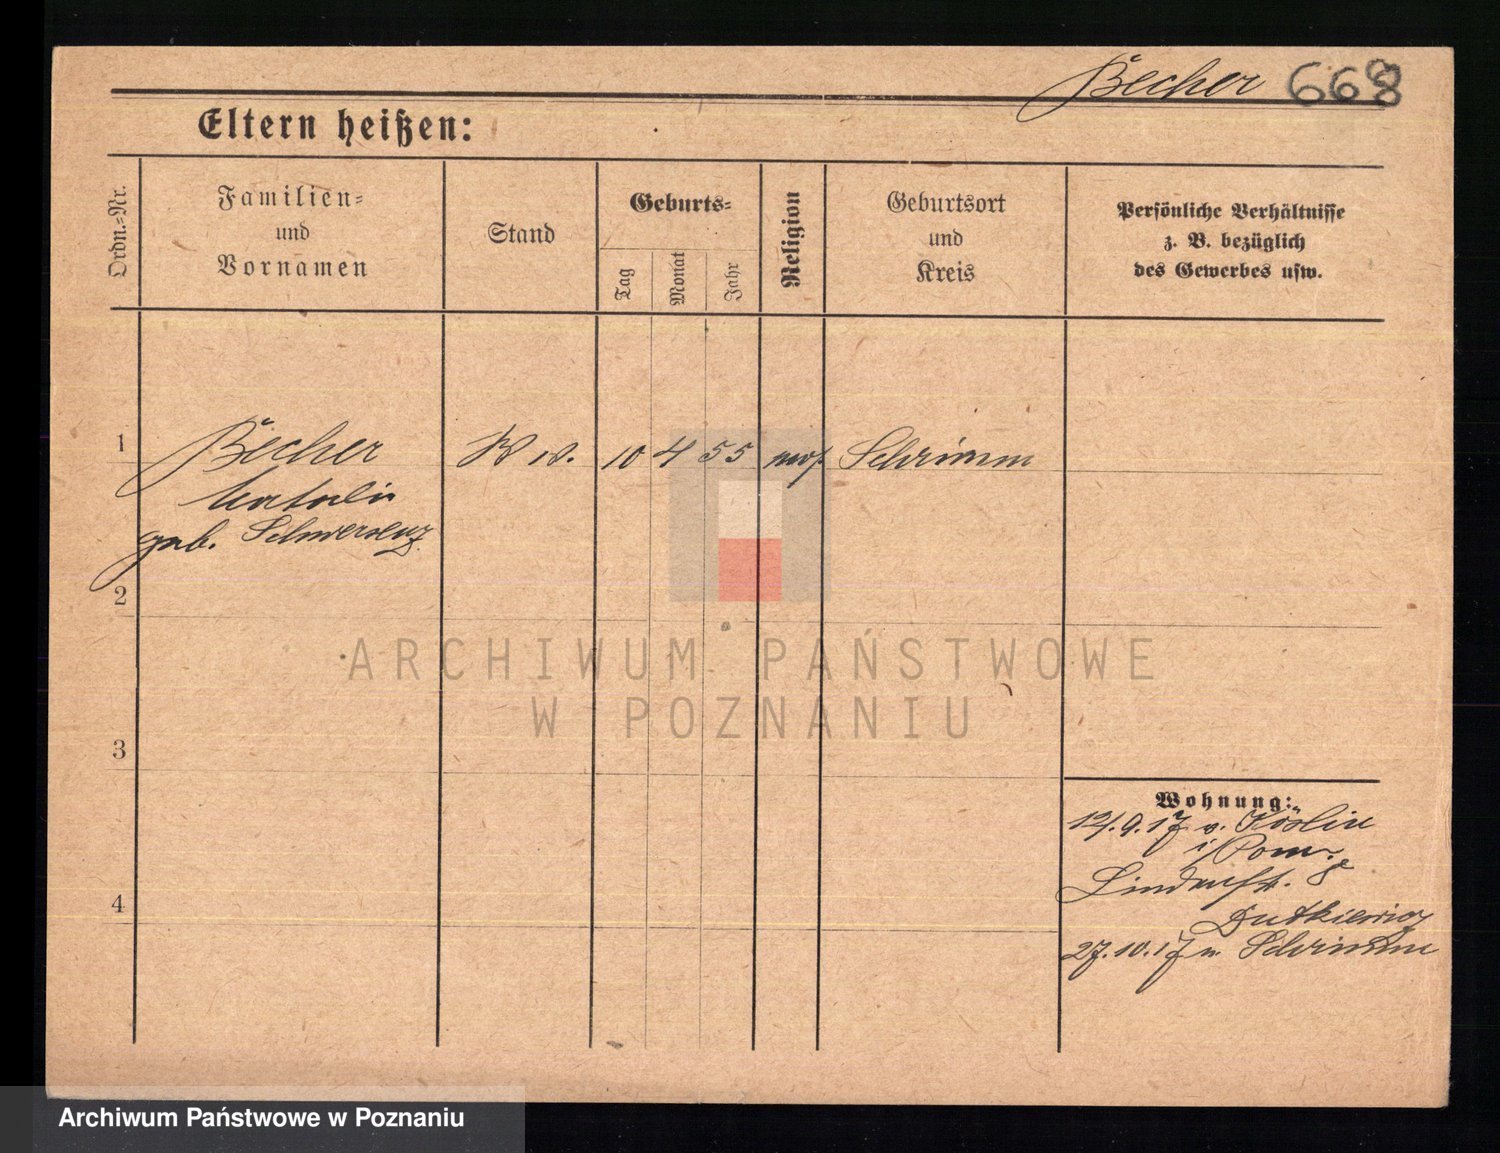 Becher 668
Eltern heißen:
Ordn.=Nr.
Familien=
und
Vornamen
Stand
Geburts=
Tag
Monat
Jahr
Religion
Geburtsort
und
Kreis
Persönliche Verhältnisse
z. B. bezüglich
des Gewerbes usw.
1
Becher Ww. 10 4 55 mos. Schrimm
Natalie
geb. Schwersenz
2
3
4
Wohnung:
12/9.17 v. Köslin
i/Pom.
Lindenstr. 8
Dutkiewicz
27.10.17 n. Schrimm
ARCHIWUM PAŃSTWOWE
W POZNANIU
Archiwum Państwowe w Poznaniu